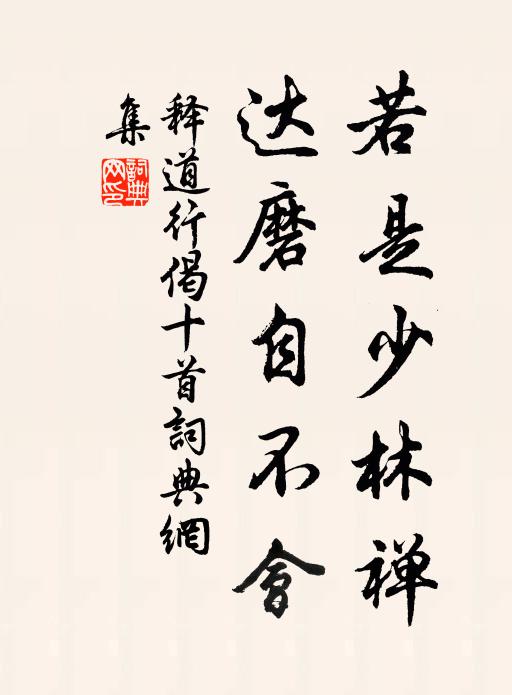 若是少林禅
达磨自不會
释道行偈十首詞典網
集
詞典
网印